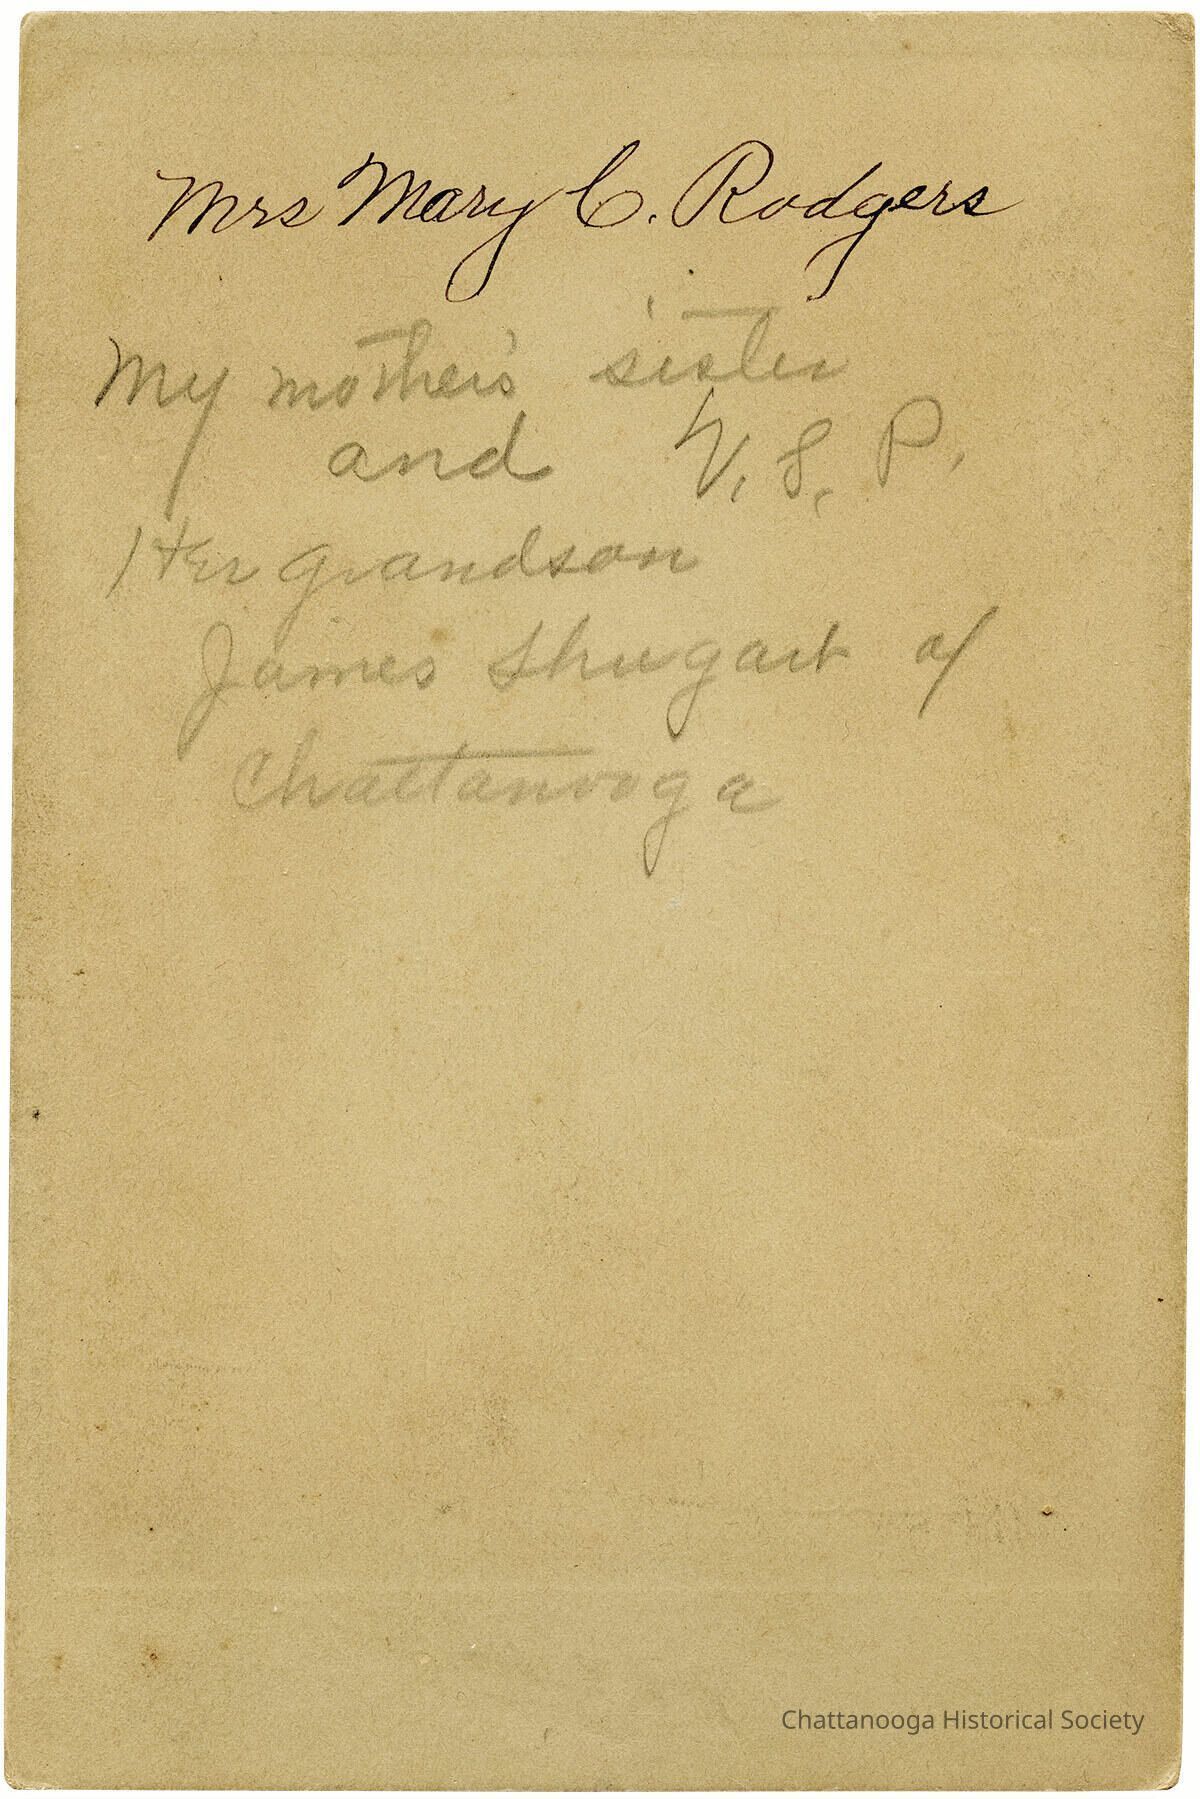 Mrs Mary C. Rodgers
My mother's sister
and V. S. P.
Her grandson
James Shugart of
Chattanooga
Chattanooga Historical Society